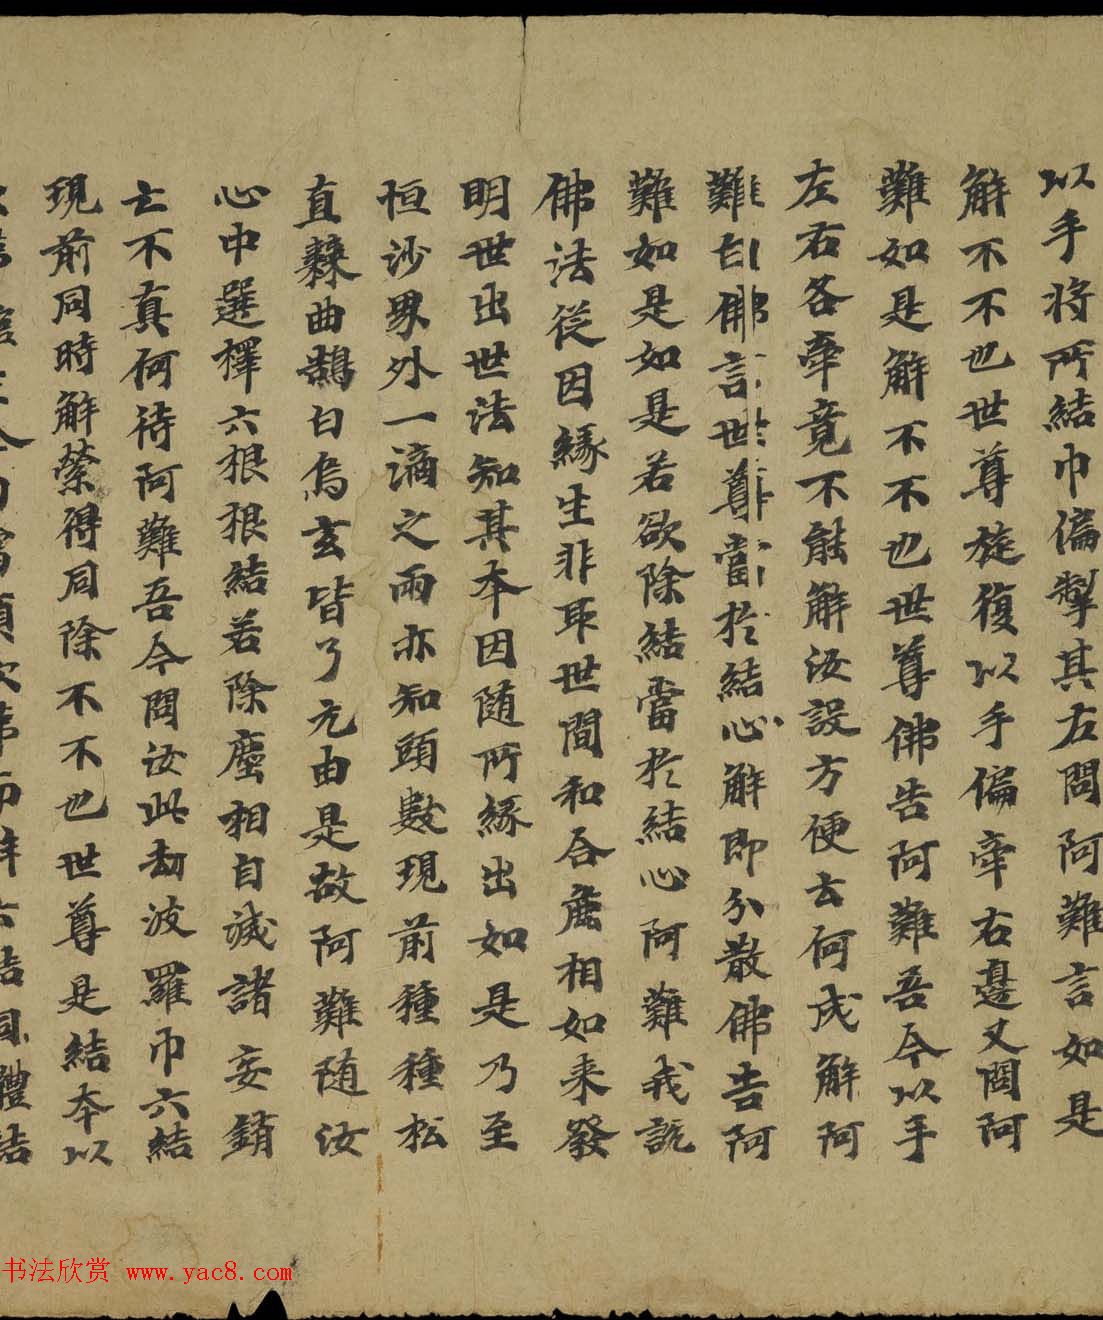 以手將所結巾偏掣其左問阿難言如是
解不不也世尊旋復以手偏牽右邊又問阿
難如是解不不也世尊佛告阿難吾今以手
左右各牽竟不能解汝設方便云何成解阿
難白佛言世尊當於結心解即分散佛告阿
難如是如是若欲除結當於結心阿難我說
佛法從因緣生非取世間和合麁相如来發
明世出世法知其本因随所緣出如是乃至
恒沙界外一滴之雨亦知頭數現前種種松
直棘曲鵠白烏玄皆了元由是故阿難随汝
心中選擇六根根結若除塵相自滅諸妄銷
亡不真何待阿難吾今問汝此劫波羅巾六結
現前同時解縈得同除不不也世尊是結本以
次第而解六結同體結
书法欣赏 www.yac8.com